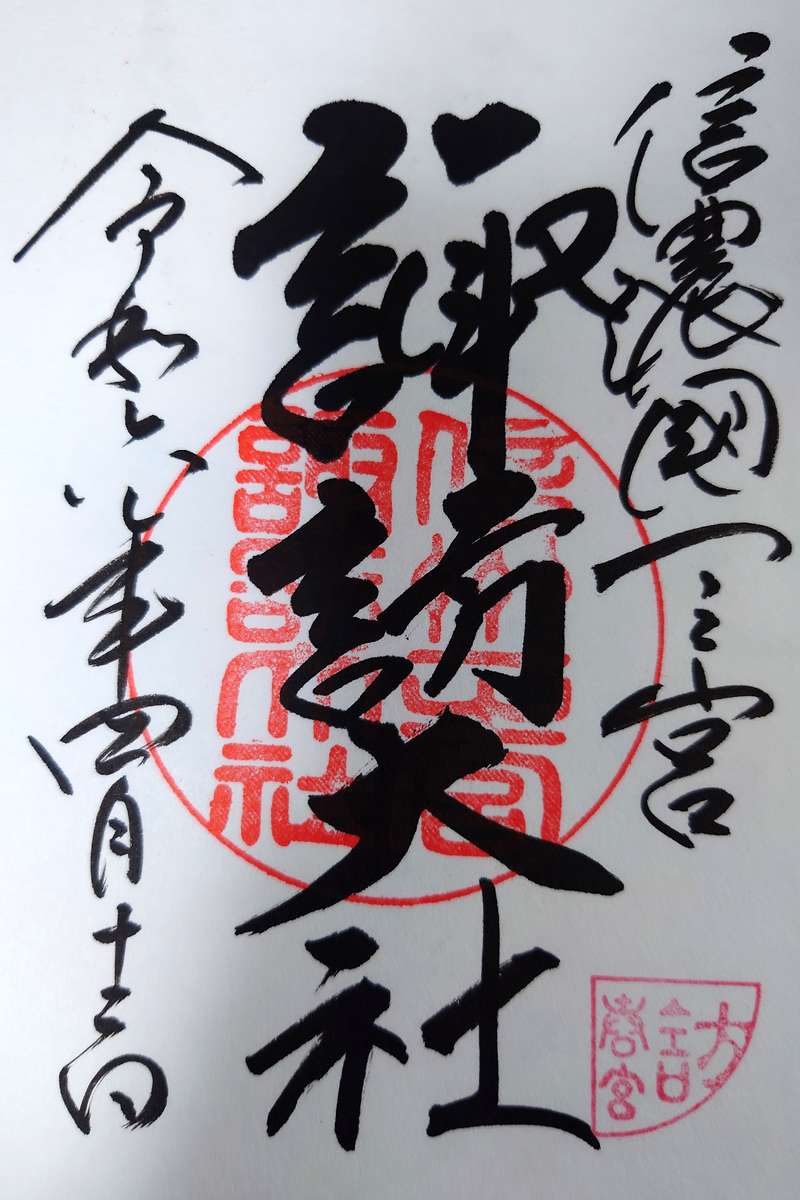 信濃國一之宮
諏訪大社
令和六年四月十二日
諏訪大社
春宮